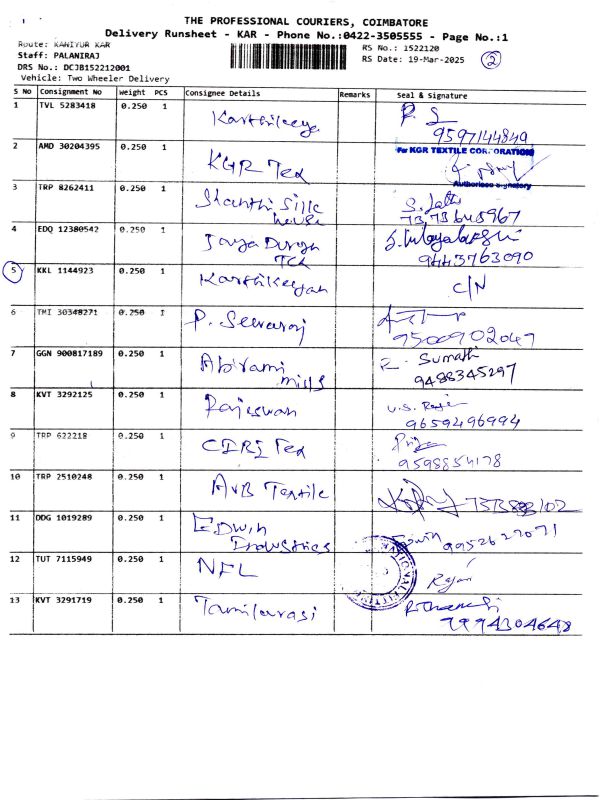 THE PROFESSIONAL COURIERS, COIMBATORE
Delivery Runsheet - KAR - Phone No.:0422-3505555 - Page No.:1
Route: KANIYUR KAR
RS No.: 1522120
Staff: PALANIRAJ
RS Date: 19-Mar-2025
2
DRS No.: DCJB152212001
Vehicle: Two Wheeler Delivery
S No Consignment No Weight PCS Consignee Details Remarks Seal & Signature
1 TVL 5283418 0.250 1 Karthikeya
9597144849
2 AMD 30204395 0.250 1 KGR Tex
For KGR TEXTILE CORPORATION
Authorised Signatory
3 TRP 8262411 0.250 1 Shanthi Silk House
4 EDQ 12380542 0.250 1 Jaya Durga Tex
9443763090
5 KKL 1144923 0.250 1 Karthikeyan C/N
6 TMI 30348271 0.250 1 P. Selvaraj
9500902047
7 GGN 900817189 0.250 1 Abirami mills R. Sumathi
9488345297
8 KVT 3292125 0.250 1 Rajeswari
9659496994
9 TRP 622218 0.250 1 Priya
9598854178
10 TRP 2510248 0.250 1 AVB Textile
11 DDG 1019289 0.250 1 EDWIN Industries Edwin 9952627071
12 TUT 7115949 0.250 1 NFL
13 KVT 3291719 0.250 1 Tamilarasi
9994304648